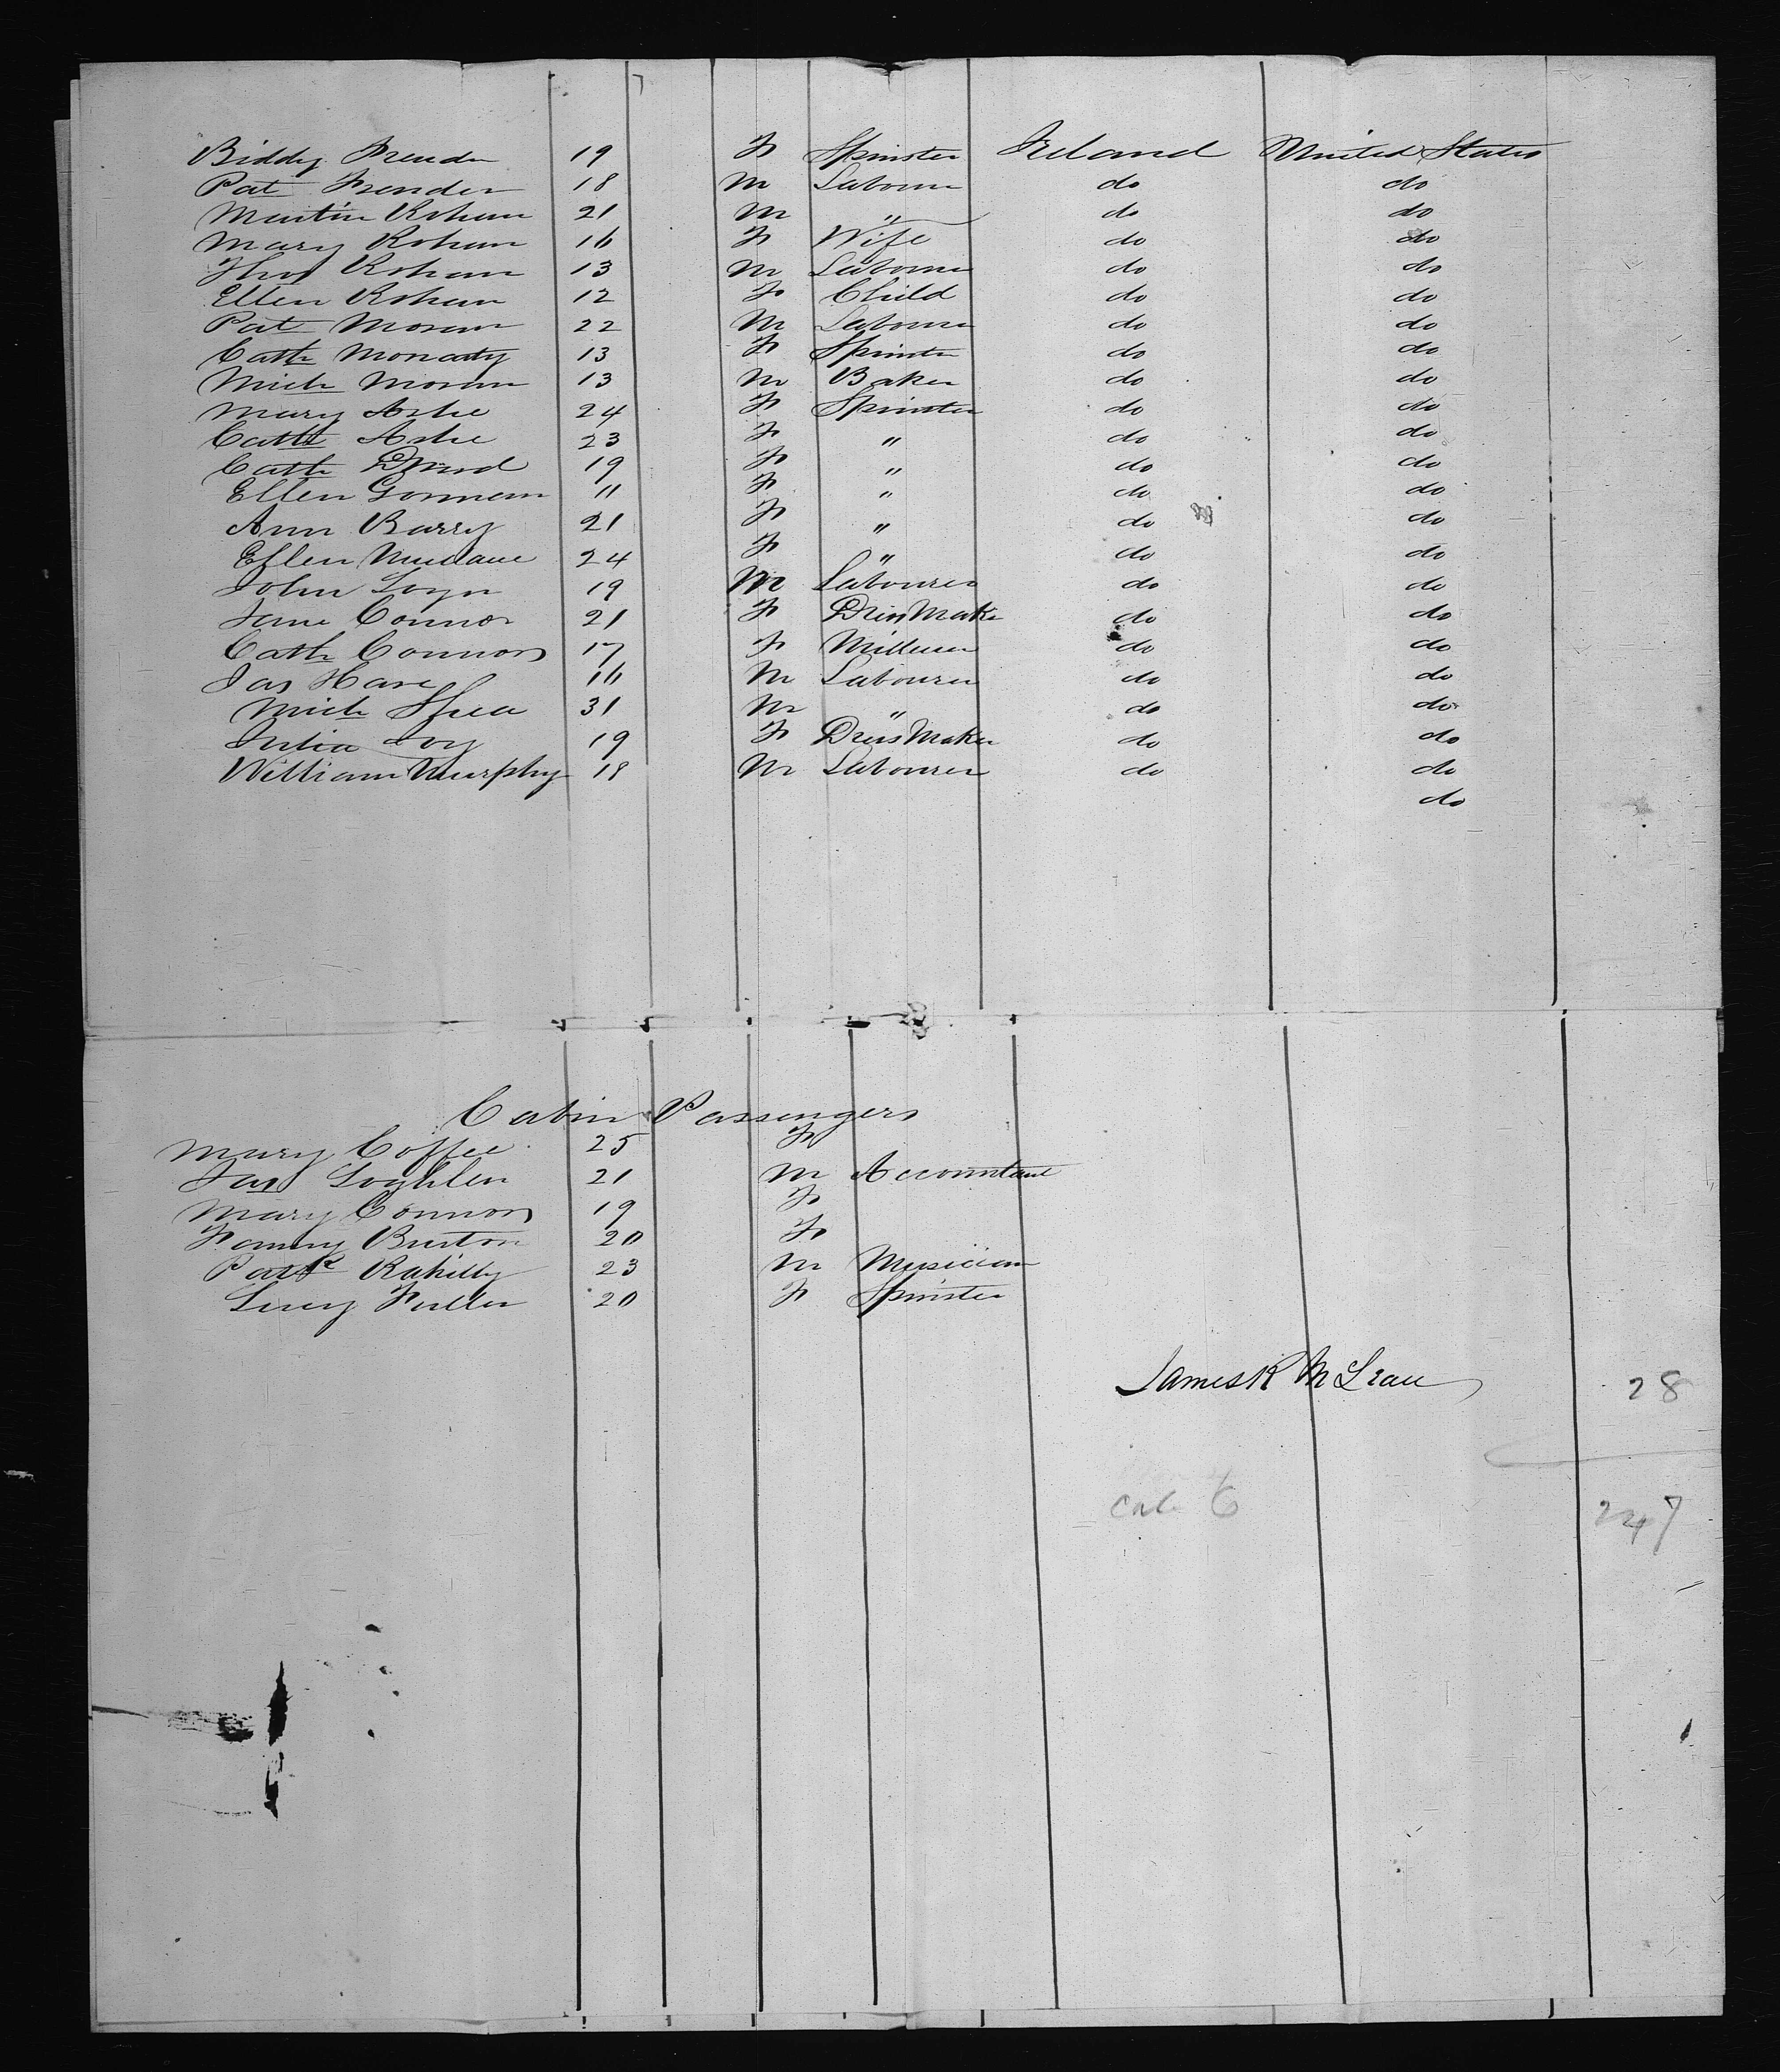 Biddy 19 F Spinster Ireland United States
Pat 18 M Labourer do do
Martin Rohan 21 M " do do
Mary Rohan 16 F Wife do do
Thos Rohan 13 M Labourer do do
Ellen Rohan 12 F Child do do
Pat Moran 22 M Labourer do do
Cath Moriarty 13 F Spinster do do
Mich Moran 13 M Baker do do
Mary Ashe 24 F Spinster do do
Cath Ashe 23 F " do do
Cath 19 F " do do
Ellen Gorman 11 F " do do
Ann Barry 21 F " do do
Ellen 24 F " do do
John 19 M Labourer do do
Jane Connor 21 F Dress Maker do do
Cath Connors 17 F Milliner do do
Jas Hare 16 M Labourer do do
Mich Shea 31 M " do do
Julia Foy 19 F Dress Maker do do
William Murphy 18 M Labourer do do
do
Cabin Passengers
Mary Coffee 25 F
Jas Loghlen 21 M Accountant
Mary Connors 19 F
Fanny Burton 20 F
Patk Rahilly 23 M Musician
Lucy Fuller 20 F Spinster
James R McLean 28
Cab 6 247